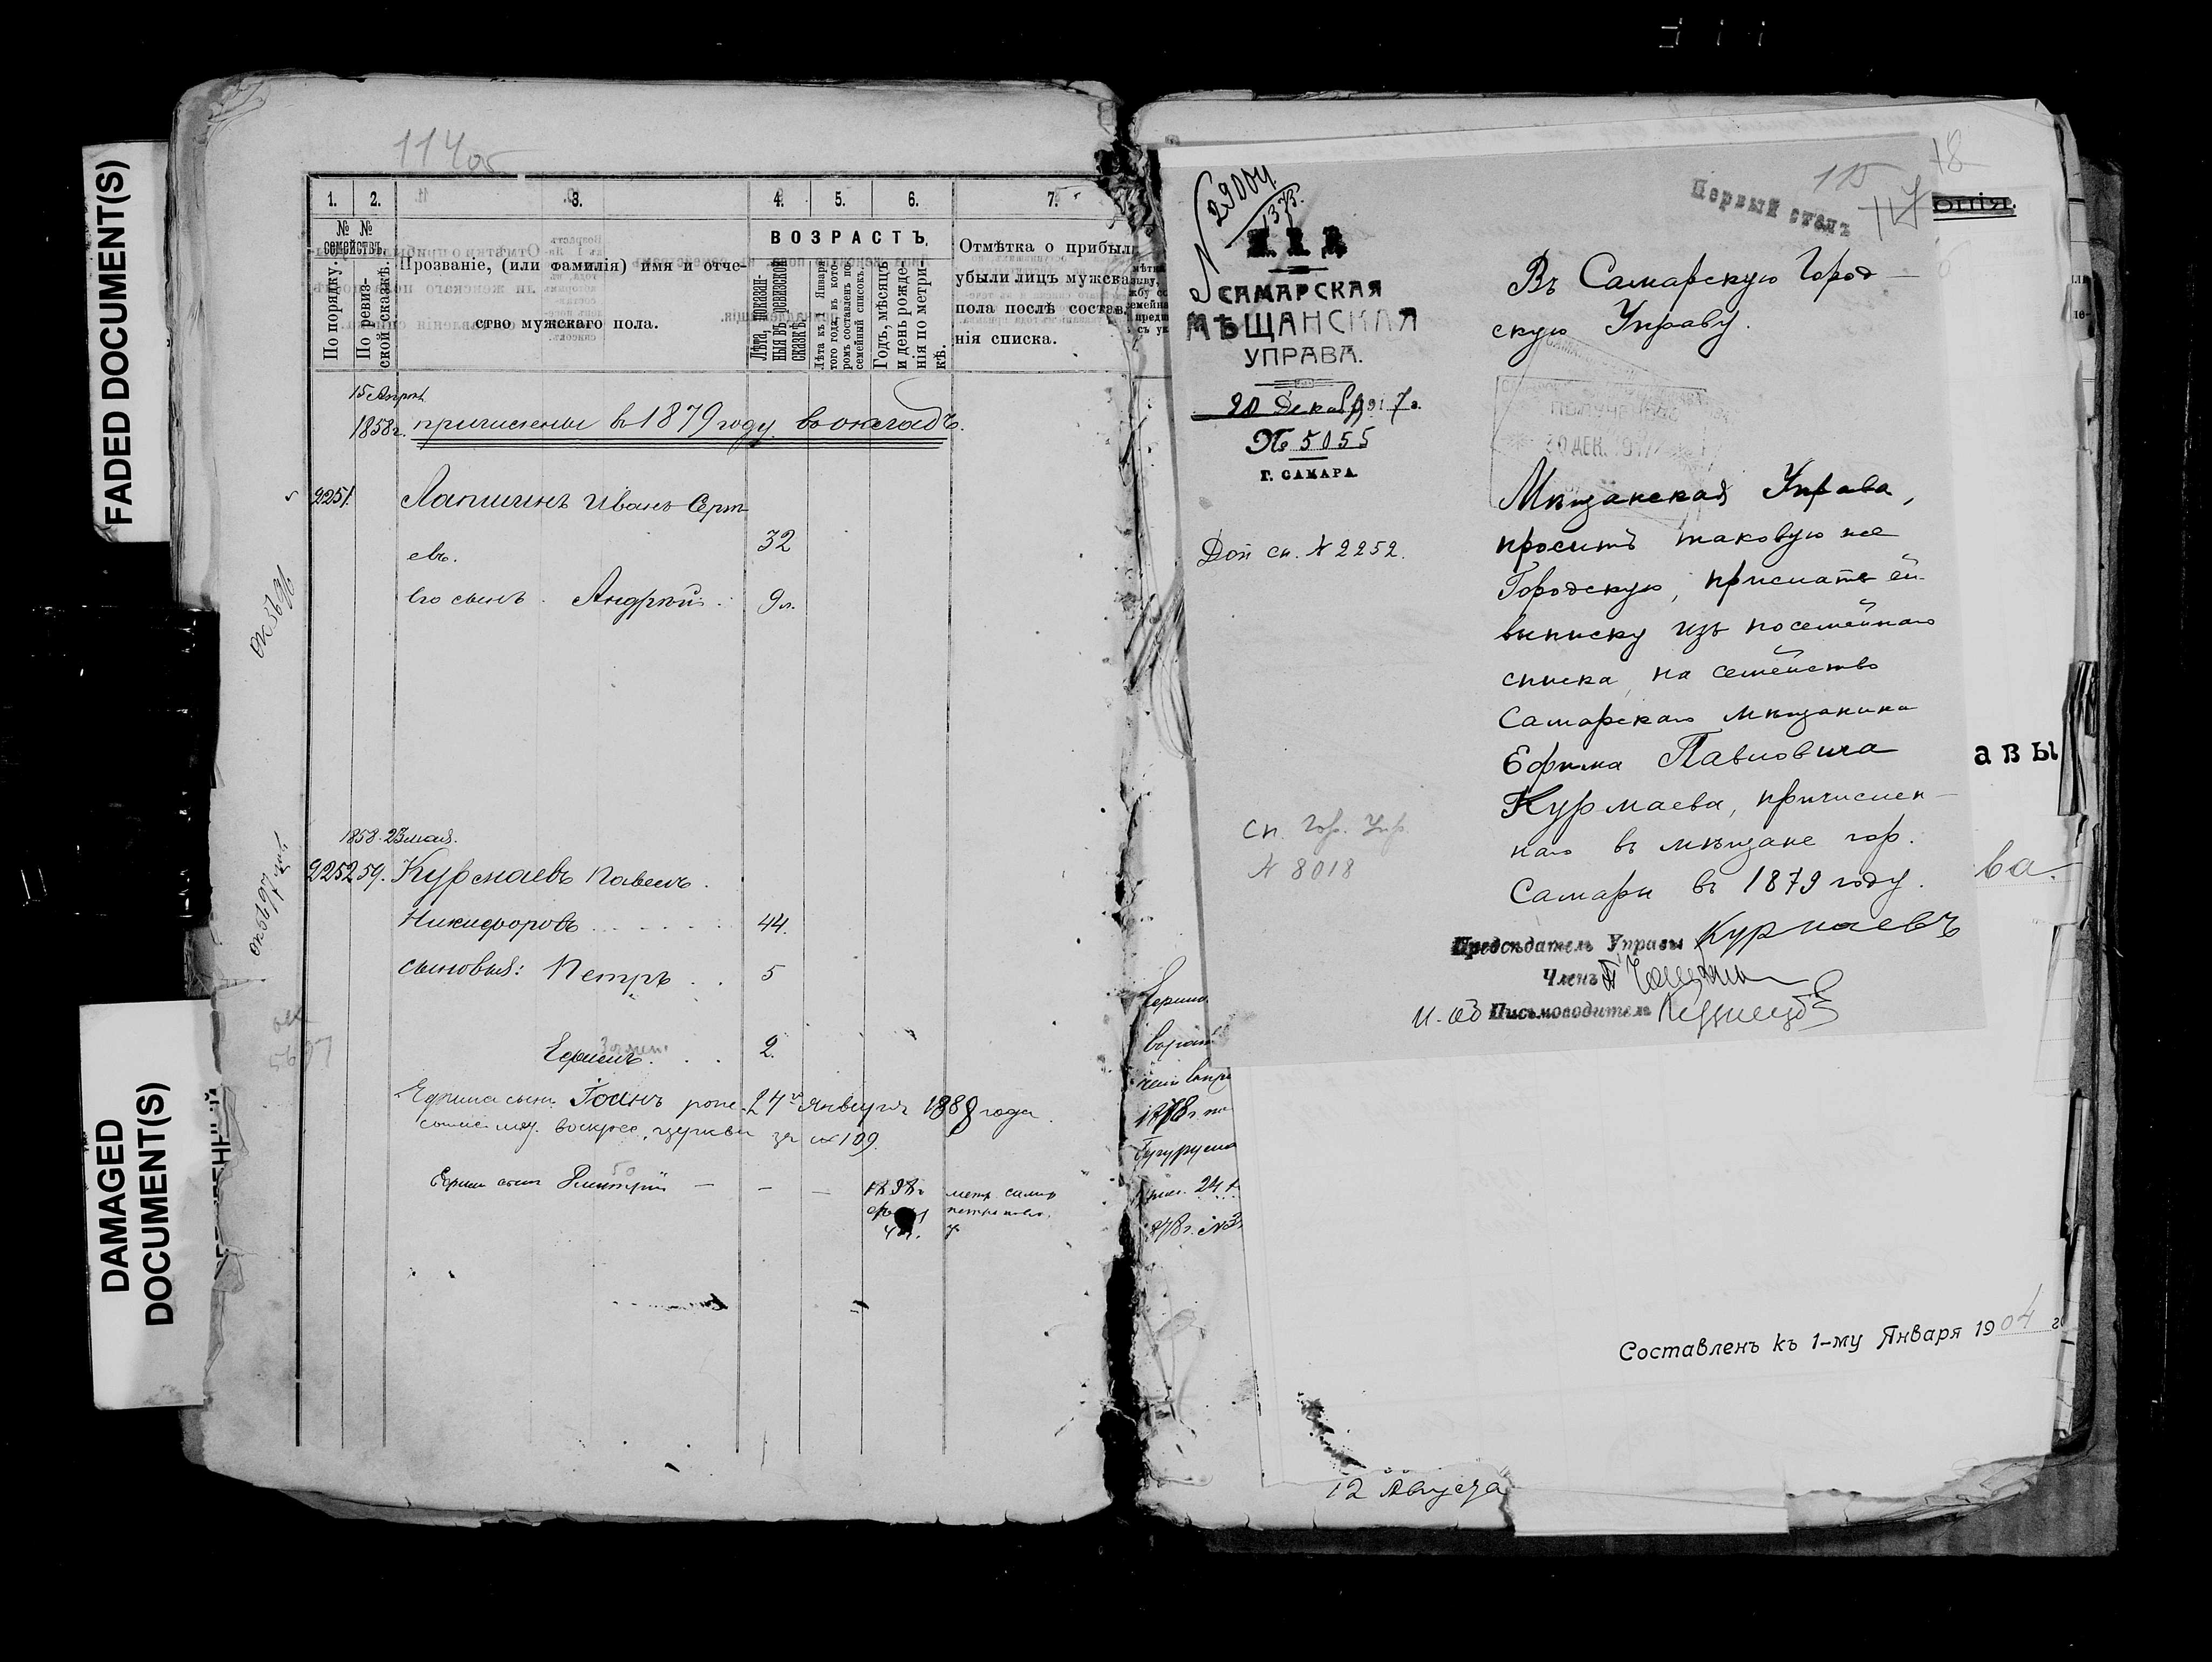 FADED DOCUMENT(S)
DAMAGED
DOCUMENT(S)
114об
1. 2. 3. 4. 5. 6. 7.
№ №
семействъ.
По порядку.
По ревиз-
ской сказкѣ.
Прозваніе, (или фамилія) имя и отче-
ство мужскаго пола.
ВОЗРАСТЪ,
Лѣта, показан-
ныя въ ревизской
сказкѣ.
Лѣта къ 1 Января
того года, въ кото-
ромъ составленъ по-
семейный списокъ.
Годъ, мѣсяцъ
и день рожде-
нія по метри-
кѣ.
Отмѣтка о прибыл
убыли лицъ мужска
пола послѣ состав.
нія списка.
15 Апрѣл
1858г. причислены въ 1879 году въ окладъ.
2251. Лапшинъ Иванъ Серг
евъ. 32
его сынъ Андрей. 9л.
1858. 23 мая.
2252 59. Курмаевъ Павелъ.
Никифоровъ 44.
сыновья: Петръ 5
Ефимъ. 2
Ефима сынъ Іоанъ 24 Января 1888 года
церкви за № 109
Ефима сынъ Дмитрій 1898г
ок 5697
115
Первый столъ
№ 29004
1373.
М. В. Д.
САМАРСКАЯ
МѢЩАНСКАЯ
УПРАВА.
20 Декабр 1917г.
№ 5055
Г. САМАРА
Въ Самарскую Город-
скую Управу.
ПОЛУЧЕНО
30 ДЕК. 1917
Доп сп. № 2252.
Мѣщанская Управа,
проситъ таковую же
Городскую, прислать ей
выписку изъ посемейнаго
списка, на семейство
Самарскаго мѣщанина
Ефима Павловича
Курмаева, причислен-
наго въ мѣщане гор.
Самары въ 1879 году.
Сп. Гор. Упр.
№ 8018
Предсѣдатель Управы Курмаевъ
Членъ
И. об Письмоводителя
авы
ва.
Составленъ къ 1-му Января 1904 г
12 Августа